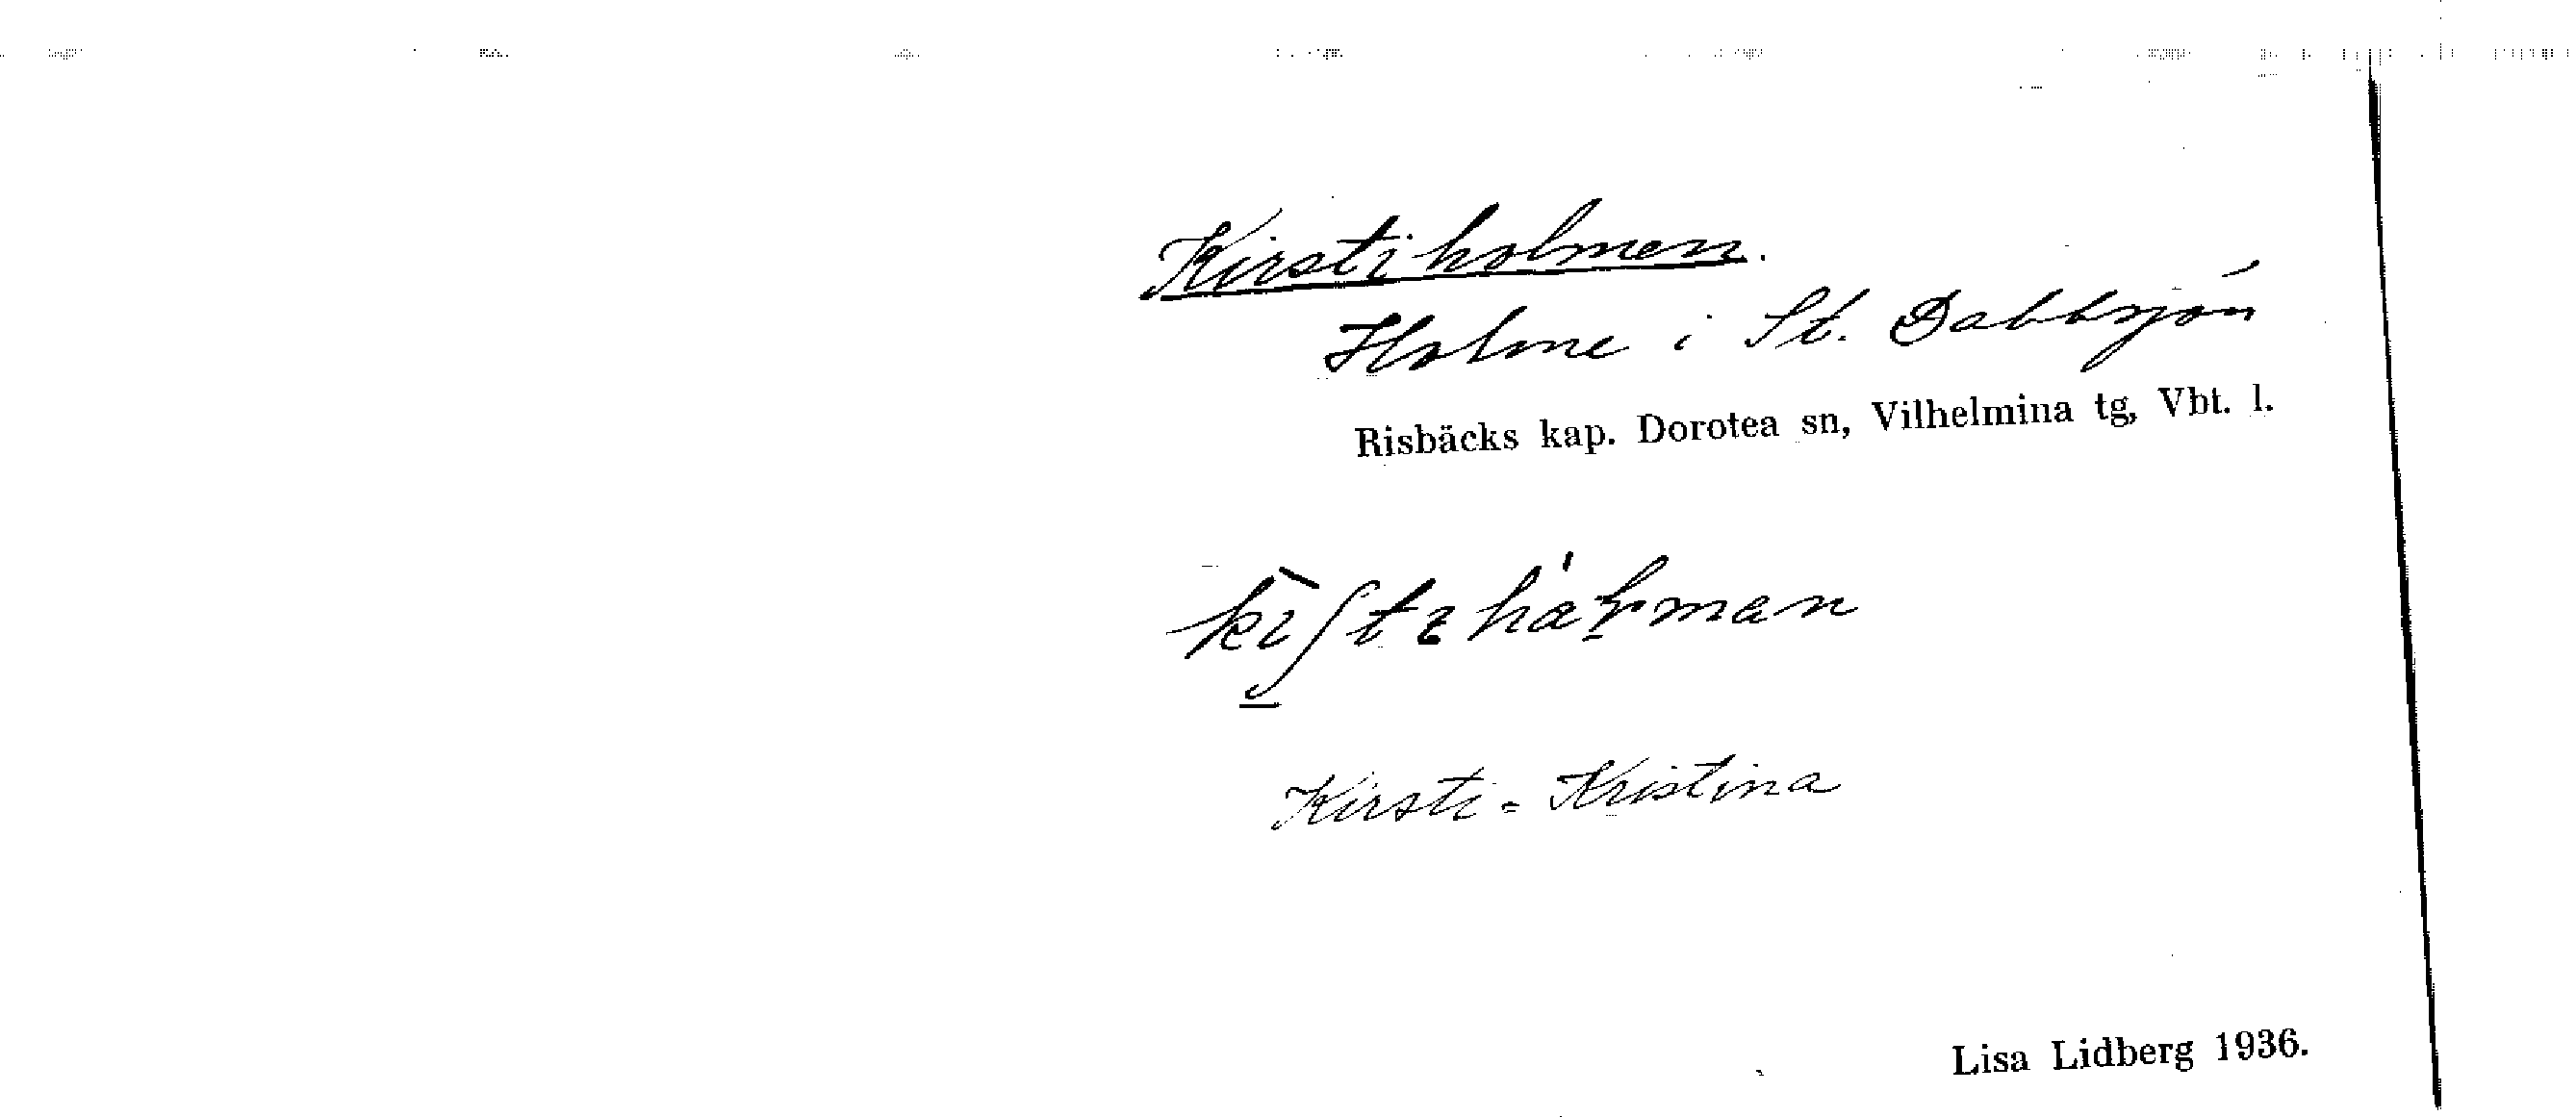 Kirstiholmen.
Holme i St. Dabbsjön
Risbäcks kap. Dorotea sn, Vilhelmina tg, Vbt. l.
Kirsti = Kristina
Lisa Lidberg 1936.